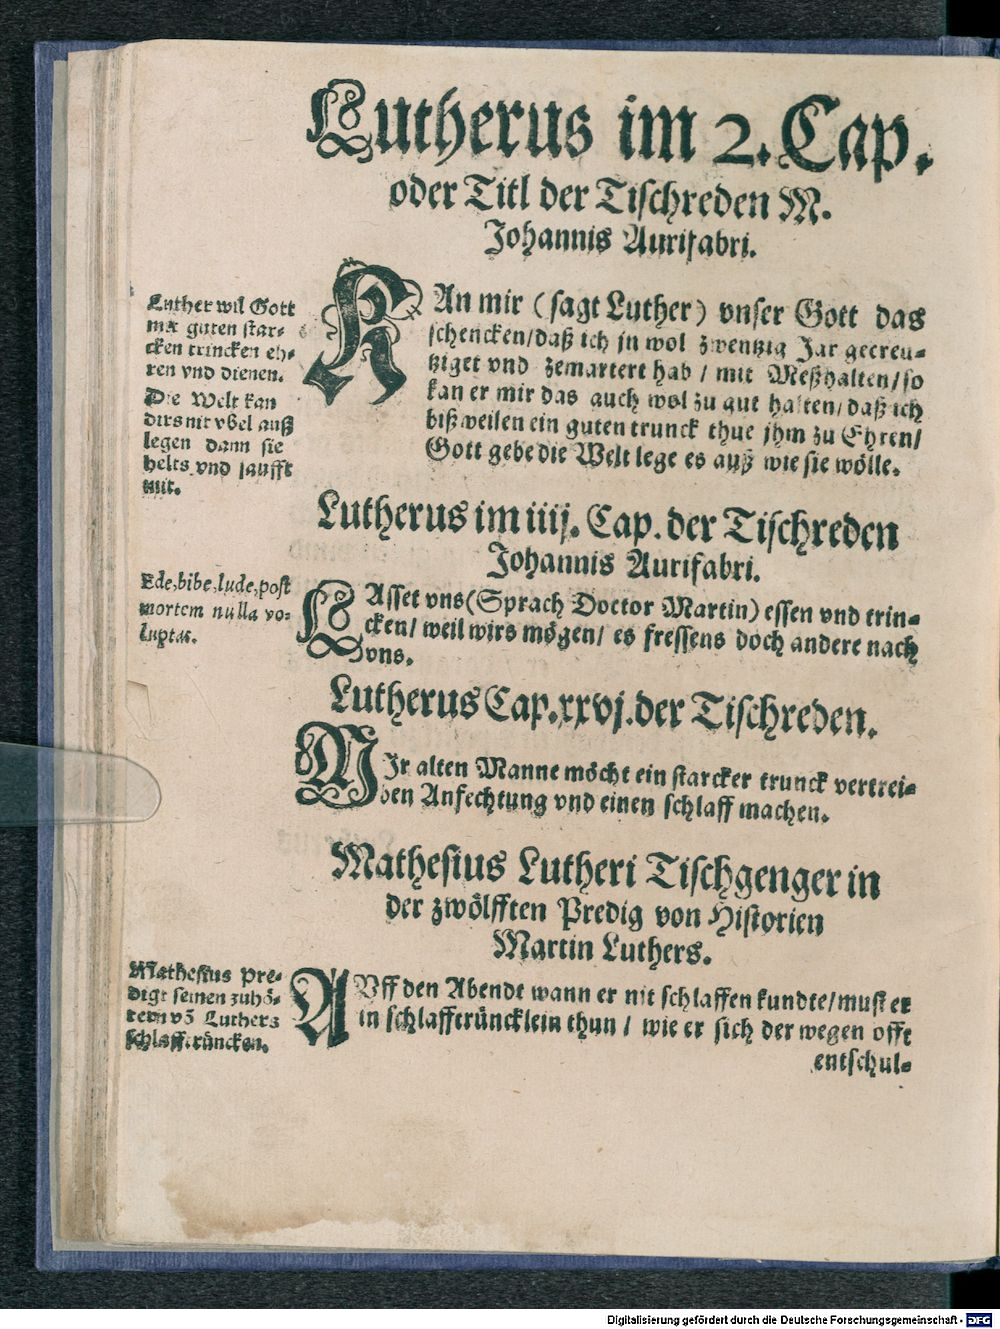 Lutherus im 2. Cap.
oder Titl der Tischreden M.
Johannis Aurifabri.
Luther wil Gott
mit guten star-
cken trincken eh-
ren vnd dienen.
Die Welt kan
dirs nit vbel auß
legen dann sie
helts vnd saufft
mit.
KAn mir (sagt Luther) vnser Gott das
schencken/daß ich jn wol zwentzig Jar gecreu-
tziget vnd zemartert hab / mit Meßhalten/so
kan er mir das auch wol zu gut halten/daß ich
bißweilen ein guten trunck thue jhm zu Ehren/
Gott gebe die Welt lege es auß wie sie wölle.
Lutherus im iiij. Cap. der Tischreden
Johannis Aurifabri.
Ede, bibe, lude, post
mortem nulla vo-
luptas.
LAsset vns (Sprach Doctor Martin) essen vnd trin-
cken/ weil wirs mögen/ es fressens doch andere nach
vns.
Lutherus Cap. xxvj. der Tischreden.
MIr alten Manne möcht ein starcker trunck vertrei-
ben Anfechtung vnd einen schlaff machen.
Mathesius Lutheri Tischgenger in
der zwölfften Predig von Historien
Martin Luthers.
Mathesius pre-
digt seinen zuhö-
rern võ Luthers
schlafftrüncken.
AVff den Abendt wann er nit schlaffen kundte/must er
in schlafftrüncklein thun / wie er sich der wegen offt
entschul-
Digitalisierung gefördert durch die Deutsche Forschungsgemeinschaft - DFG